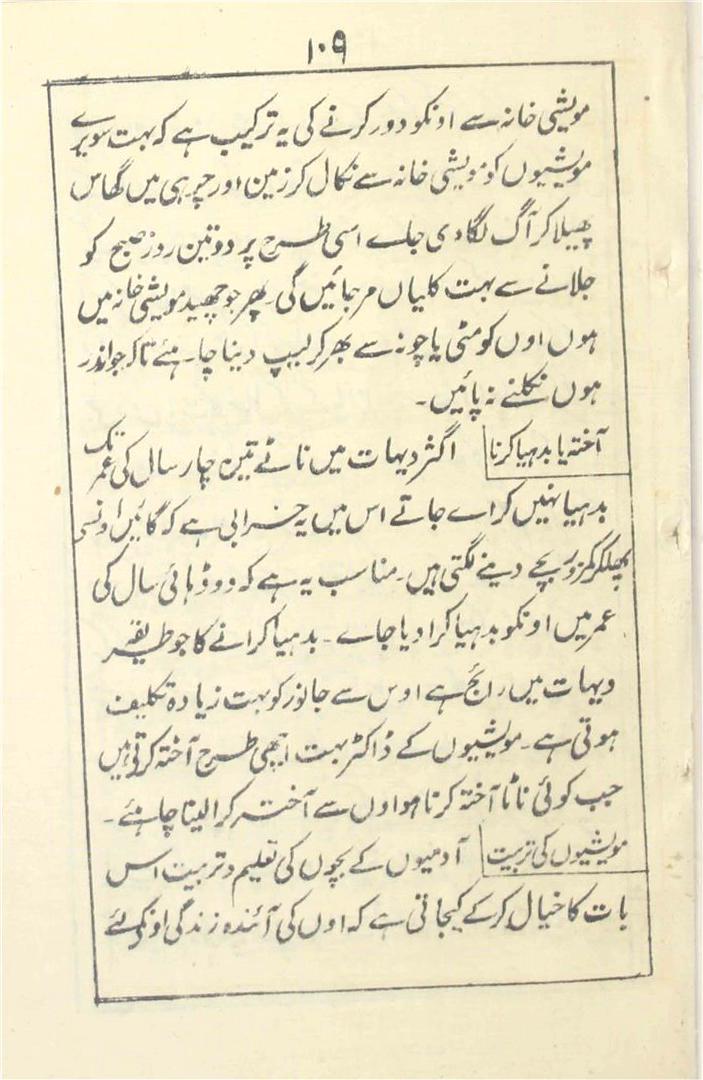 ۱۰۹
مویشی خانہ سے اونکو دور کرنے کی یہ ترکیب ہے کہ بہت سویرے
مویشیوں کو مویشی خانہ سے نکال کر زمین اور چرہی میں گھاس
پھیلا کر آگ لگا دی جاے اسی طرح پر دو تین روز صبح کو
جلانے سے بہت کلیاں مرجائیں گی۔ پھر جو چھید مویشی خانہ میں
ہوں اوں کو مٹی یا چونہ سے بھر کر لیپ دینا چاہئے تاکہ جو اندر
ہوں نکلنے نہ پائیں۔
آختہ یا بدہیا کرنا اکثر دیہات میں ناٹے تین چار سال کی عمر تک
بدہیا نہیں کراے جاتے اس میں یہ خرابی ہے کہ گائیں اونسی
پھلکر کمزور بچے دینے لگتی ہیں۔ مناسب یہ ہے کہ دو ڈہائی سال کی
عمر میں اونکو بدہیا کرا دیا جاے۔ بدہیا کرانے کا جو طریقہ
دیہات میں رائج ہے اوس سے جانور کو بہت زیادہ تکلیف
ہوتی ہے۔ مویشیوں کے ڈاکٹر بہت اچھی طرح آختہ کرتی ہیں
جب کوئی ناٹا آختہ کرنا ہو اوں سے آختہ کرا لینا چاہئے۔
مویشیوں کی تربیت آدمیوں کے بچوں کی تعلیم و تربیت اس
بات کا خیال کر کے کیجاتی ہے کہ اوں کی آئندہ زندگی اونکے لئے